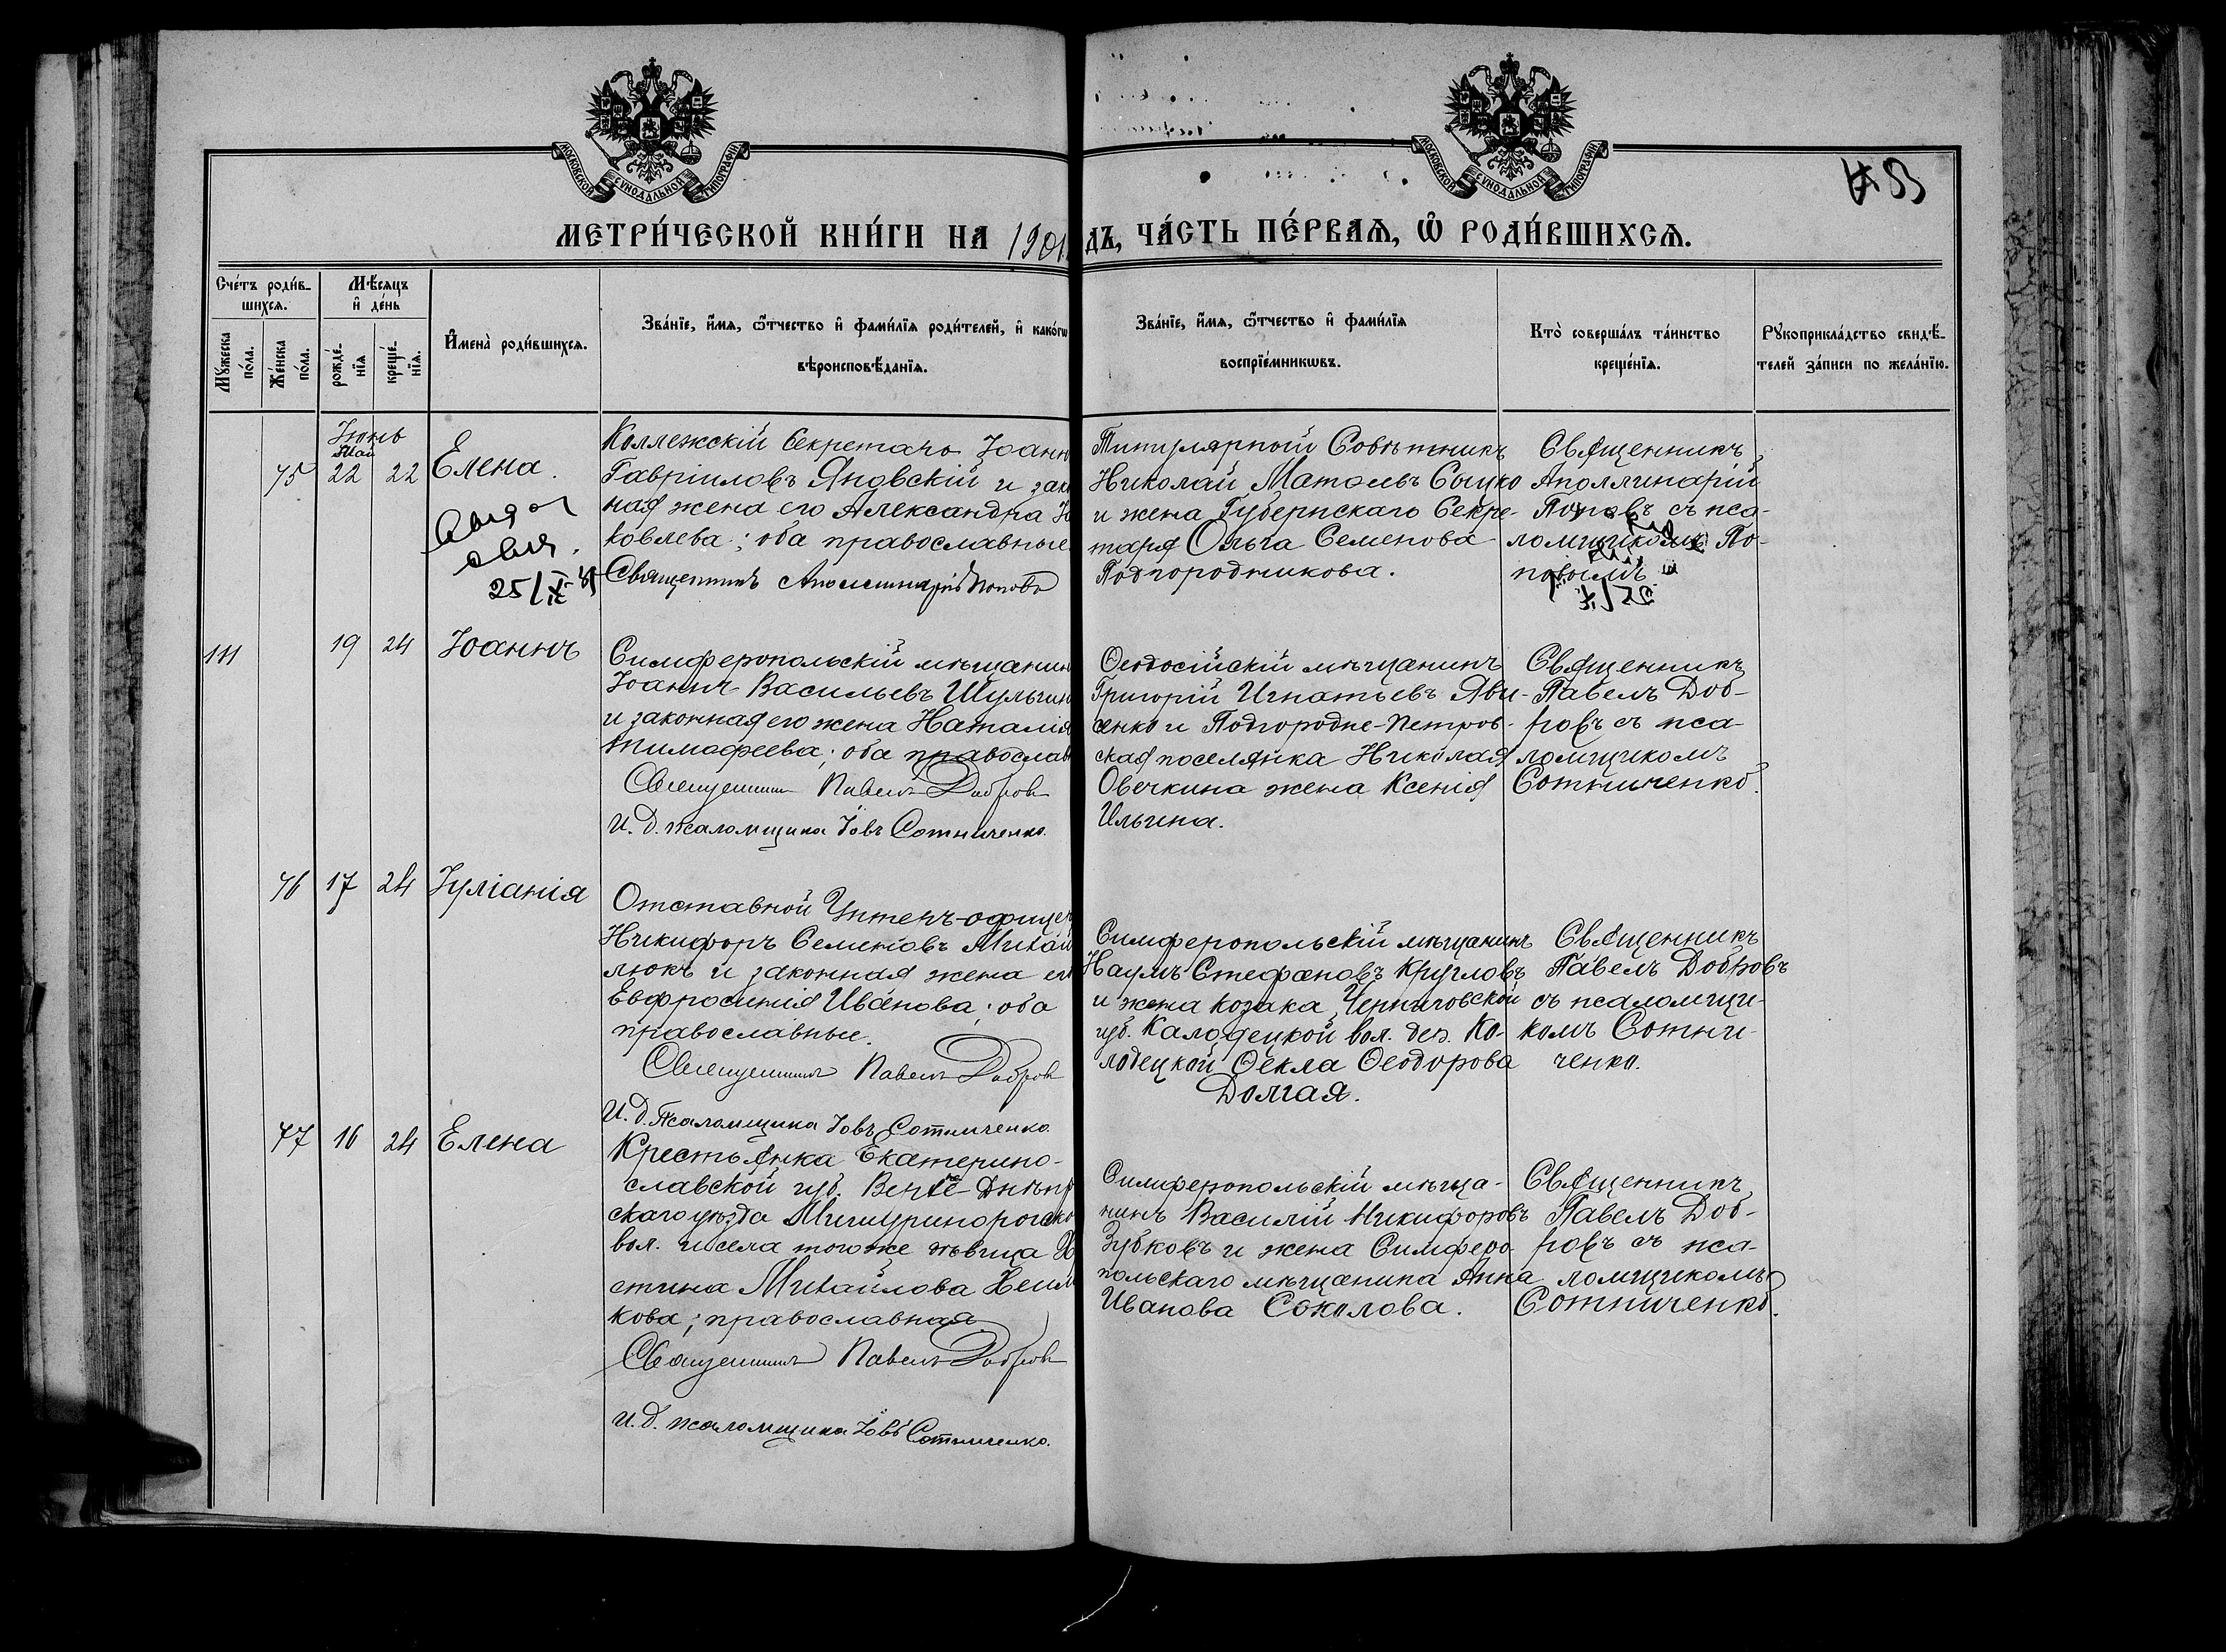 МОСКОВСКОЙ СѴНОДАЛЬНОЙ ТИПОГРАФІИ
МОСКОВСКОЙ СѴНОДАЛЬНОЙ ТИПОГРАФІИ
53
МЕТРИ́ЧЕСКОЙ КНИ́ГИ НА 1901
ДЪ, ЧА́СТЬ ПЕ́РВАѦ, Ѡ҆ РОДИ́ВШИХСѦ.
Сче́тъ роди́в-
шихсѧ.
Мꙋ́жеска по́ла.
Же́нска по́ла.
Мѣ́сѧцъ
и҆ де́нь
рожде́-
нїѧ
креще́-
нїѧ.
И҆мена̀ роди́вшихсѧ.
Зва́нїе, и҆́мѧ, ѻ҆́тчество и҆ фами́лїѧ роди́телей, и҆ како́гѡ
вѣроисповѣ́данїѧ.
Зва́нїе, и҆́мѧ, ѻ҆́тчество и҆ фами́лїѧ
воспрїе́мникѡвъ.
Кто̀ соверша́лъ та́инство
креще́нїѧ.
Рꙋкоприкла́дство свидѣ́-
телей за́писи по жела́нїю.
Іюнь
Май
75 22 22 Елена.
25/IX
Коллежскій Секретарь Іоанн
Гавріиловъ Яновскій и зак
ная жена его Александра Я
ковлева; оба православные.
Священникъ Аполлинарій Поповъ
Титулярный Совѣтникъ
Николай
и жена Губернскаго Секре-
таря Ольга Семенова
Подгородникова.
Священникъ
Аполлинарій
Поповъ съ пса-
ломщикомъ По-
повымъ.
111 19 24 Іоаннъ
Симферопольскій мѣщанин
Іоаннъ Васильевъ Шульгин
и законная его жена Наталія
Тимофеева; оба православ
Священникъ Павелъ Добровъ
И. д. псаломщика Іовъ Сотниченко.
Ѳеодосійскій мѣщанинъ
Григорій Игнатьевъ Яви-
сенко и Подгородне-Петров-
ская поселянка Николая
Овечкина жена Ксенія
Ильина.
Священникъ
Павелъ Доб-
ровъ съ пса-
ломщикомъ
Сотниченко.
76 17 24 Іуліанія
Отставной Унтеръ-офицер
Никифоръ Семеновъ Михай
люкъ и законная жена его
Евфросинія Иванова; оба
православные.
Священникъ Павелъ Добровъ
И. д. псаломщика Іовъ Сотниченко.
Симферопольскій мѣщанинъ
Наумъ Стефановъ Кругловъ
и жена козака Черниговской
губ. Калодецкой вол. дер. Ко-
лодецкой Ѳекла Ѳеодорова
Долгая.
Священникъ
Павелъ Добровъ
съ псаломщи-
комъ Сотни-
ченко.
77 16 24 Елена
Крестьянка Екатерино-
славской губ. Верхне-Днѣпр
скаго уѣзда Мишуринорогско
вол. и села того же дѣвица
стина Михайлова
кова; православная.
Священникъ Павелъ Добровъ
И. д. псаломщика Іовъ Сотниченко.
Симферопольскій мѣща-
нинъ Василій Никифоровъ
Зубковъ и жена Симферо-
польскаго мѣщанина Анна
Иванова Соколова.
Священникъ
Павелъ Доб-
ровъ съ пса-
ломщикомъ
Сотниченко.